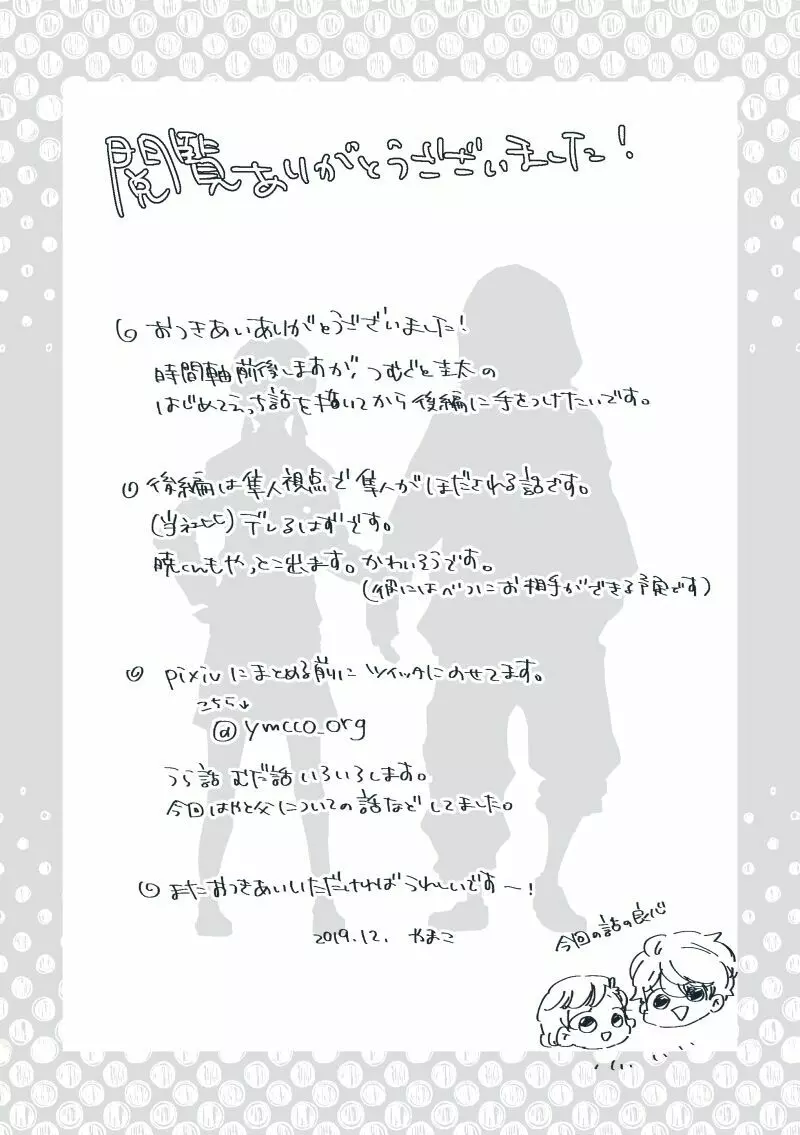 閲覧ありがとうございました!
おつきあいありがとうございました!
時間軸前後しますが、つむぐと圭太の
はじめてえっち話を描いてから後編に手をつけたいです。
後編は隼人視点で隼人がほだされる話です。
(当社比)デレるはずです。
暁くんもやっとこ出ます。かわいそうです。
(彼にはべつにお相手ができる予定です)
pixivにまとめる前にツイッタにのせてます。
こちら↓
@ymcco_org
うら話むだ話いろいろします。
今回はやと父についての話などしてました。
またおつきあいいただければうれしいです〜!
2019.12. やまこ
今回の話の良心